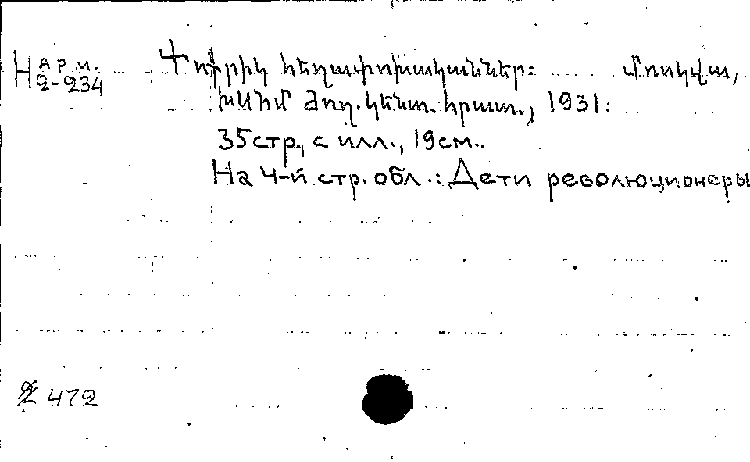 Н АРМ. 2-934
Փոքրիկ հեղափոխականներ: Մոսկվա,
ԽՍՀՄ Ժող. կենտ. հրատ., 1931:
35стр., с илл., 19см..
На 4-й стр. обл.: Дети революционеры
472